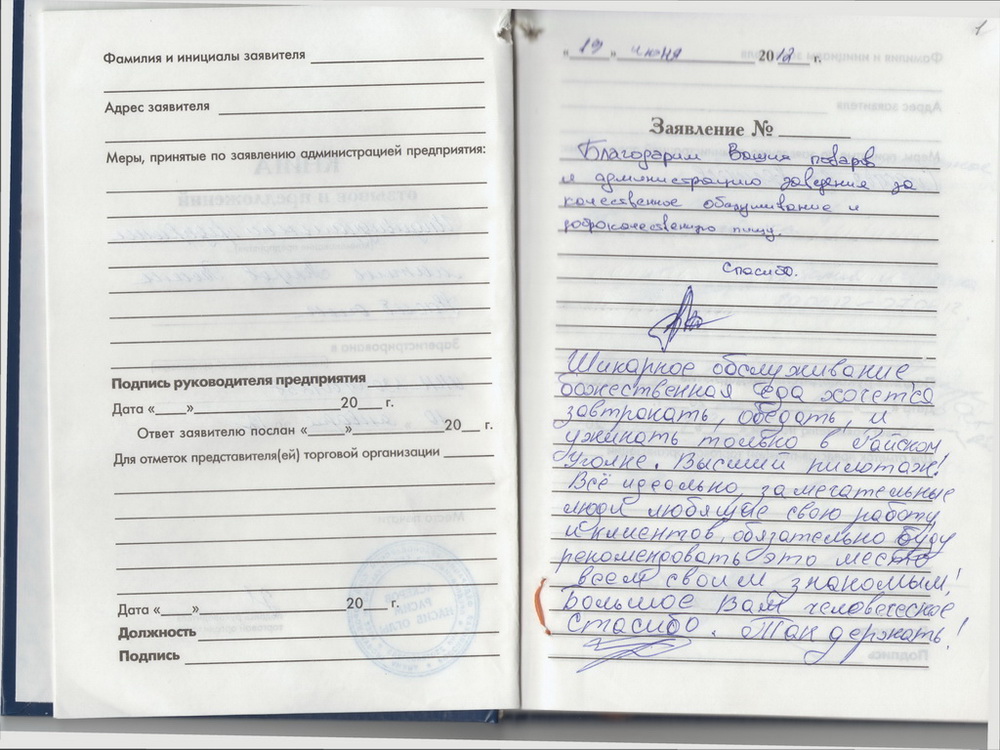 Фамилия и инициалы заявителя
Адрес заявителя
Меры, принятые по заявлению администрацией предприятия:
Подпись руководителя предприятия
Дата «____»____________20___ г.
Ответ заявителю послан «____»____________20___ г.
Для отметок представителя(ей) торговой организации
Дата «____»____________20___ г.
Должность
Подпись
1
«19» июня 2012 г.
Заявление № ________
Благодарим Ваших поваров
и администрацию заведения за
качественное обслуживание и
доброкачественную пищу.
Спасибо.
Шикарное обслуживание
божественная еда хочется
завтракать, обедать, и
ужинать только в Райском
уголке. Высший пилотаж!
Всё идеально, замечательные
люди любящие свою работу
и клиентов, обязательно буду
рекомендовать это место
всем своим знакомым!
Большое Вам человеческое
Спасибо. Так держать!